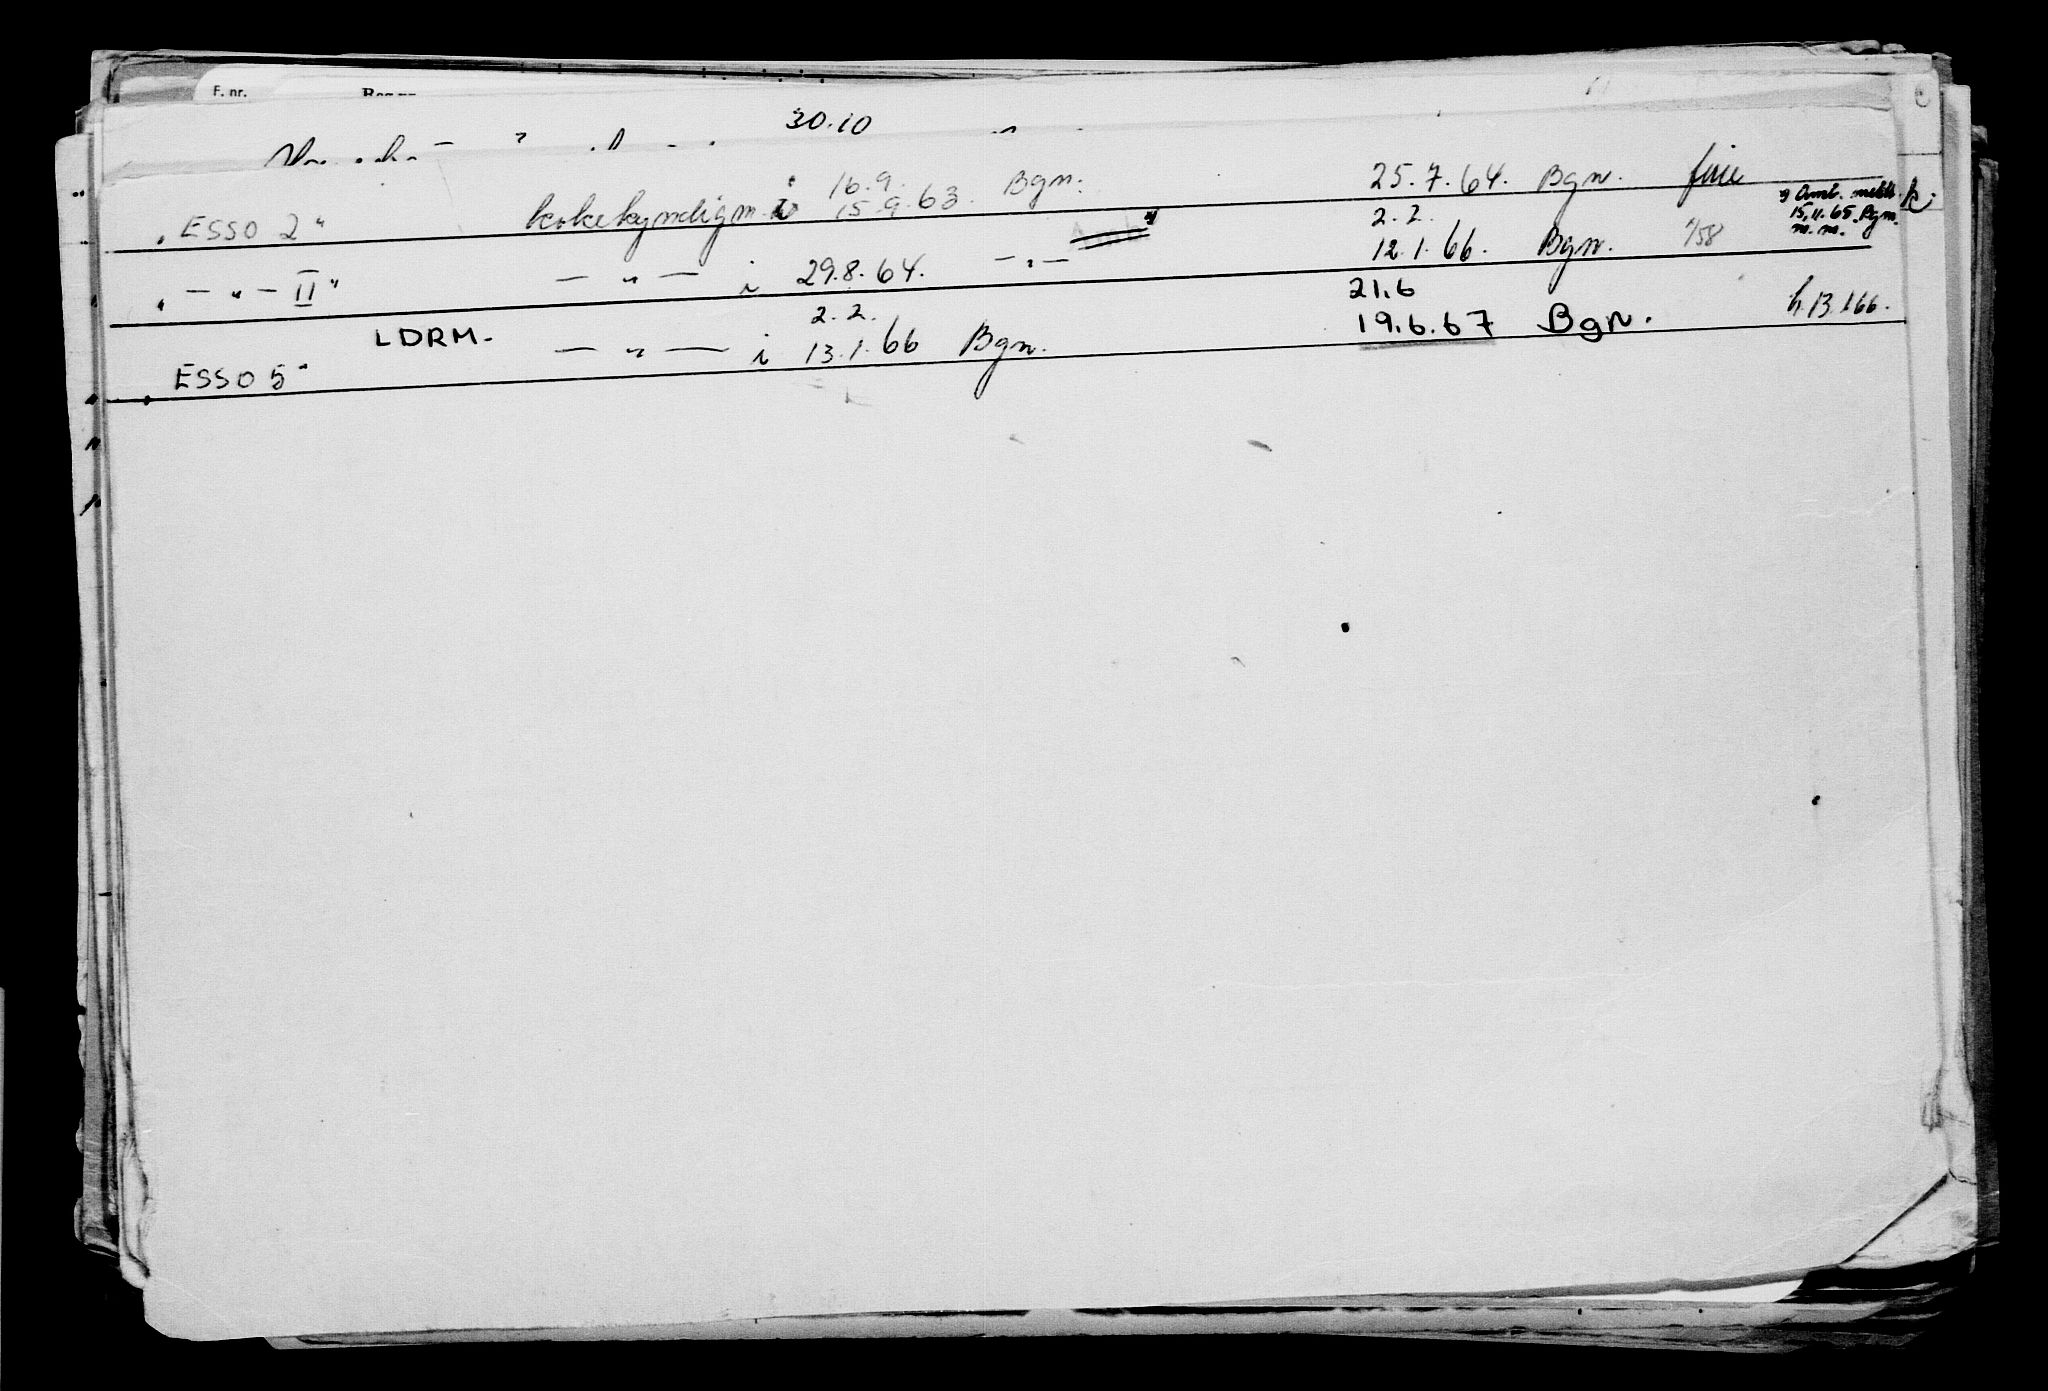 F. nr.
30.10
16.9.
„ESSO 2" kokekyndigm. i 15.9.63. Bgn. 25.7.64. Bgn. x) Amb. meldt
15.11.65. Bgn.
m. m.
2.2.
„ — „ — II" — „ — i 29.8.64. — „ — x) 12.1.66. Bgn. 1/58
LDRM.
2.2. 21.6
„ESSO 5" — „ — i 13.1.66 Bgn. 19.6.67 Bgn. h.13.1.66.